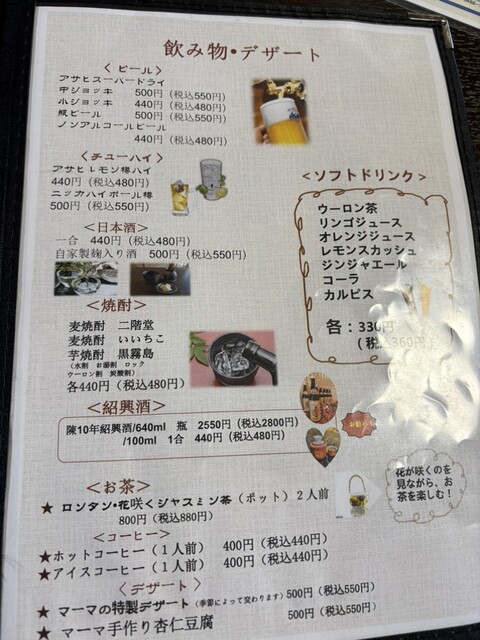 飲み物・デザート
<ビール>
アサヒスーパードライ
中ジョッキ 500円(税込550円)
小ジョッキ 440円(税込480円)
瓶ビール 500円(税込550円)
ノンアルコールビール
440円(税込480円)
<チューハイ>
アサヒレモン樽ハイ
440円(税込480円)
ニッカハイボール樽
500円(税込550円)
<日本酒>
一合 440円(税込480円)
自家製麹入り酒 500円(税込550円)
<焼酎>
麦焼酎 二階堂
麦焼酎 いいちこ
芋焼酎 黒霧島
(水割 お湯割 ロック
ウーロン割 炭酸割)
各440円(税込480円)
<ソフトドリンク>
ウーロン茶
リンゴジュース
オレンジジュース
レモンスカッシュ
ジンジャエール
コーラ
カルピス
各:330円
(税込360円)
<紹興酒>
陳10年紹興酒/640ml 瓶 2550円(税込2800円)
/100ml 1合 440円(税込480円)
<お茶>
★ ロンタン・花咲くジャスミン茶(ポット)2人前
800円(税込880円)
花が咲くのを
見ながら、お
茶を楽しむ!
<コーヒー>
★ホットコーヒー(1人前) 400円(税込440円)
★アイスコーヒー(1人前) 400円(税込440円)
<デザート>
★ マーマの特製デザート(季節によって変わります)500円(税込550円)
★ マーマ手作り杏仁豆腐 500円(税込550円)